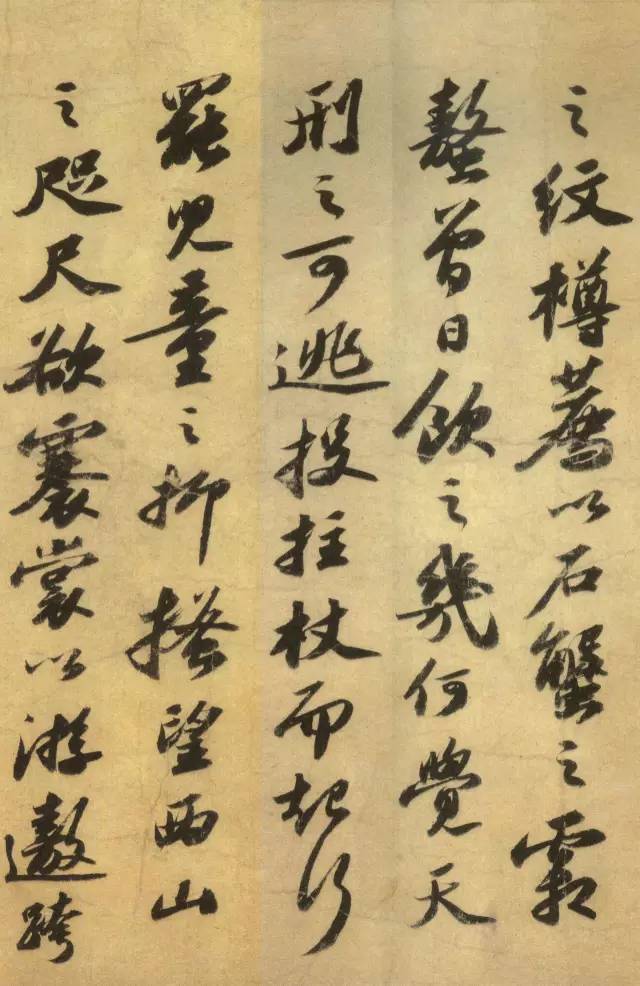 之紋樽薦以石蟹之霜
螯曾日飲之幾何覺天
刑之可逃投拄杖而起行
罷兒童之抑搔望西山
之咫尺欲褰裳以游遨跨